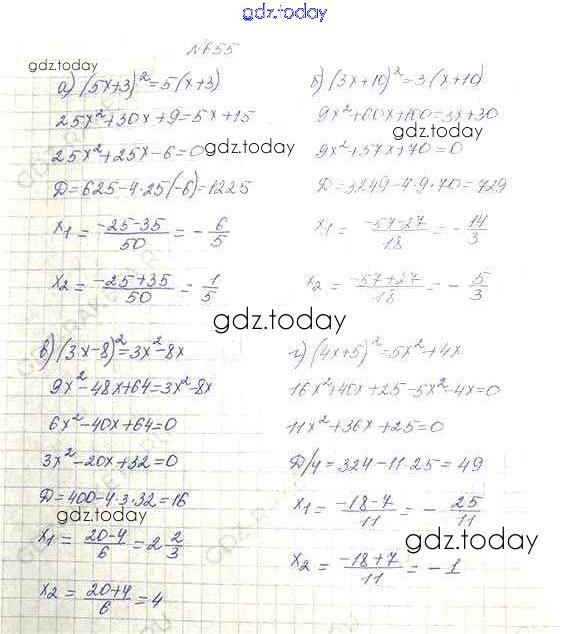 gdz.today
№655
gdz.today
а) (5x+3)²=5(x+3)
25x²+30x+9=5x+15
25x²+25x-6=0
gdz.today
Д=625-4·25(-6)=1225
x₁ = -25-35/50 = -6/5
x₂ = -25+35/50 = 1/5
б) (3x+10)²=3(x+10)
9x²+60x+100=3x+30
gdz.today
9x²+57x+70=0
Д=3249-4·9·70=729
x₁ = -57-27/18 = -14/3
x₂ = -57+27/18 = -5/3
gdz.today
в) (3x-8)²=3x²-8x
9x²-48x+64=3x²-8x
6x²-40x+64=0
3x²-20x+32=0
Д=400-4·3·32=16
gdz.today
x₁ = 20-4/6 = 2 2/3
x₂ = 20+4/6 = 4
г) (4x+5)²=5x²+4x
16x²+40x+25-5x²-4x=0
11x²+36x+25=0
Д/4=324-11·25=49
x₁ = -18-7/11 = -25/11
gdz.today
x₂ = -18+7/11 = -1